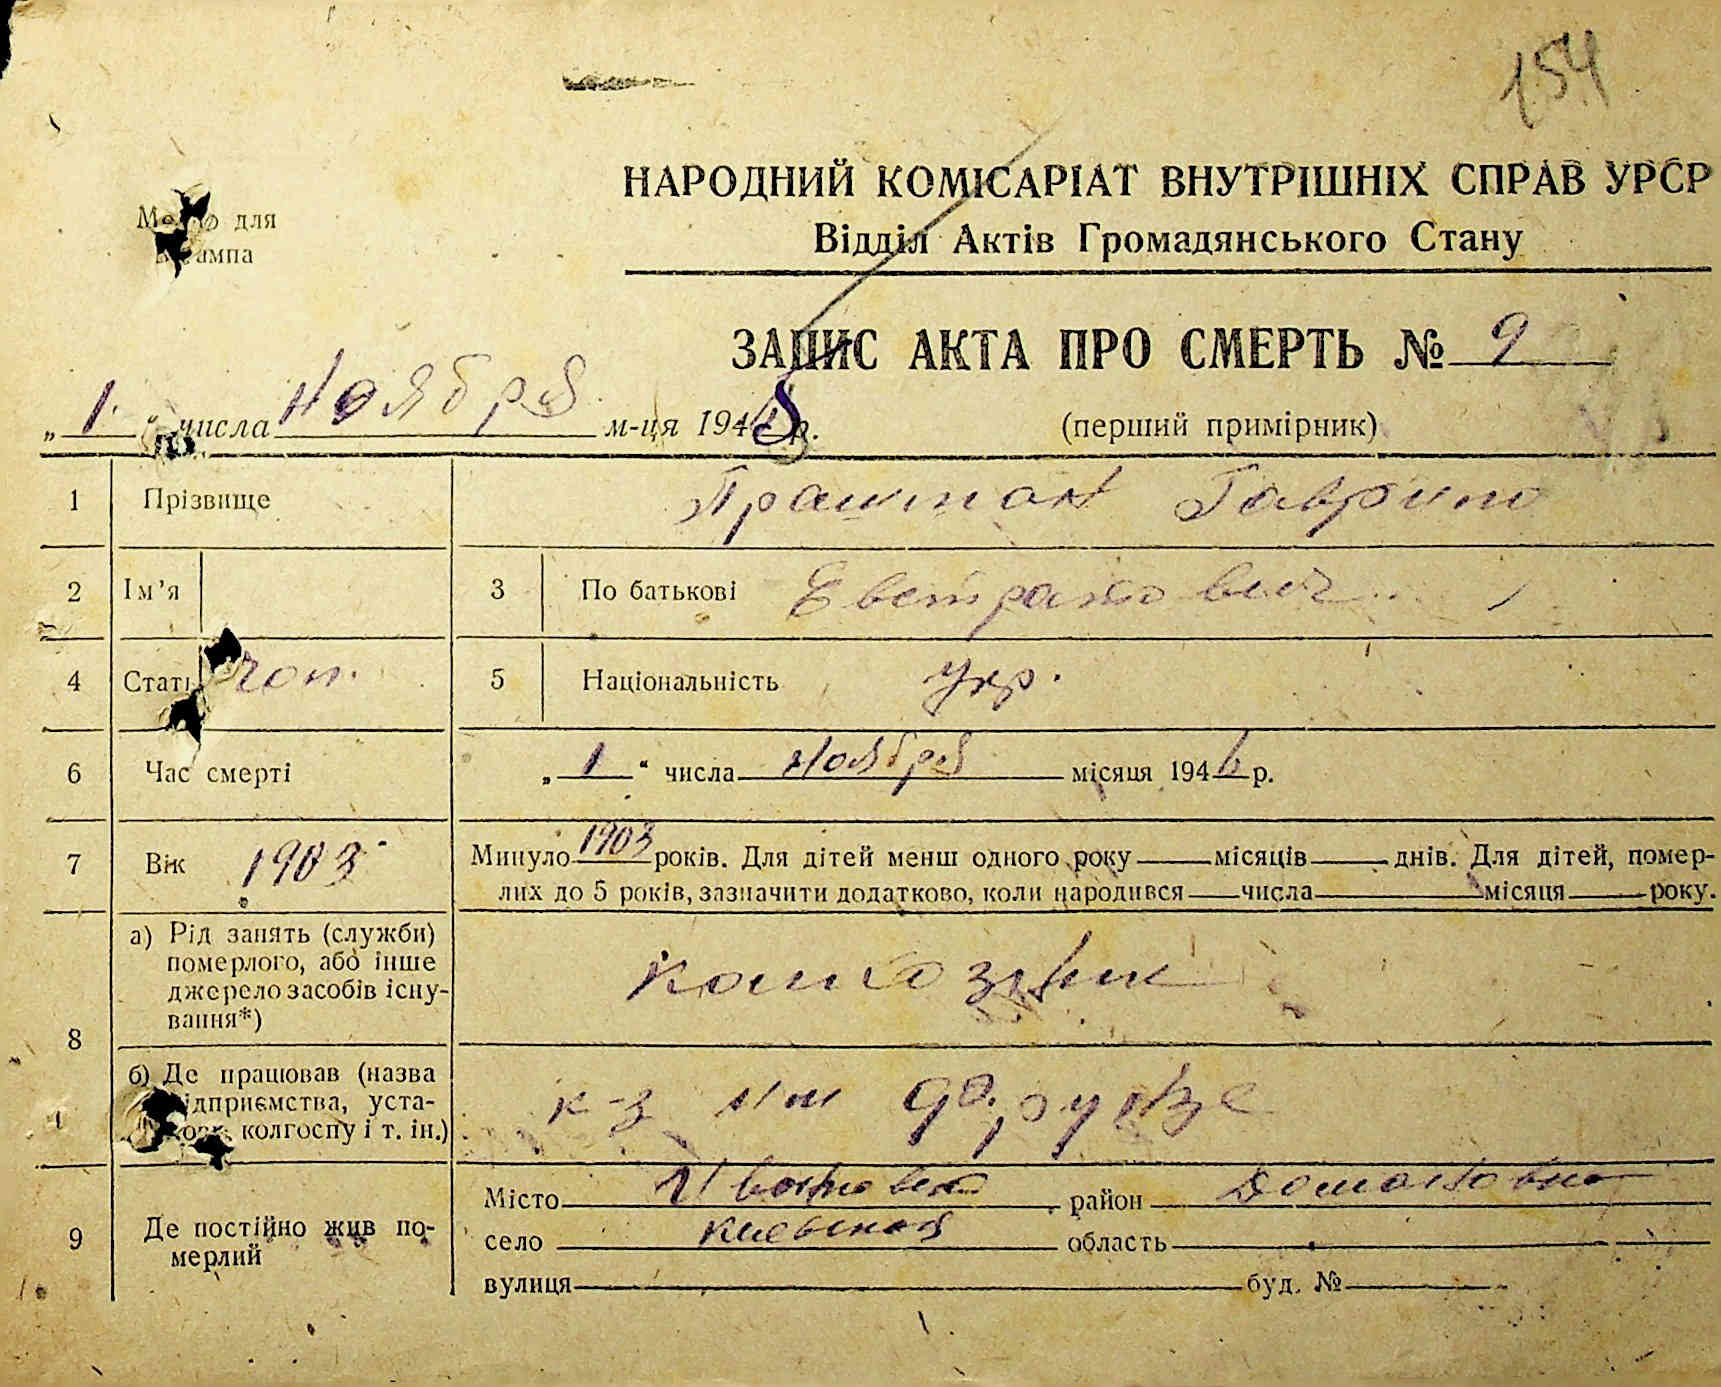 154
Місто для
штампа
НАРОДНИЙ КОМІСАРІАТ ВНУТРІШНІХ СПРАВ УРСР
Відділ Актів Громадянського Стану
ЗАПИС АКТА ПРО СМЕРТЬ № 9
„1“ числа ноября м-ця 194 р.
(перший примірник)
1 Прізвище Гаврило
2 Ім’я 3 По батькові Евстратович
4 Стать чол. 5 Національність укр.
6 Час смерті „1“ числа ноября місяця 1946 р.
7 Вік 1903 Минуло 1903 років. Для дітей менш одного року місяців днів. Для дітей, помер-
лих до 5 років, зазначити додатково, коли народився числа місяця року.
8 а) Рід занять (служби)
померлого, або інше
джерело засобів існу-
вання*)
колхозник
б) Де працював (назва
підприємства, уста-
нови, колгоспу і т. ін.)
к-з им Фрунзе
9 Де постійно жив по-
мерлий
Місто район
село Киевская область
вулиця буд. №